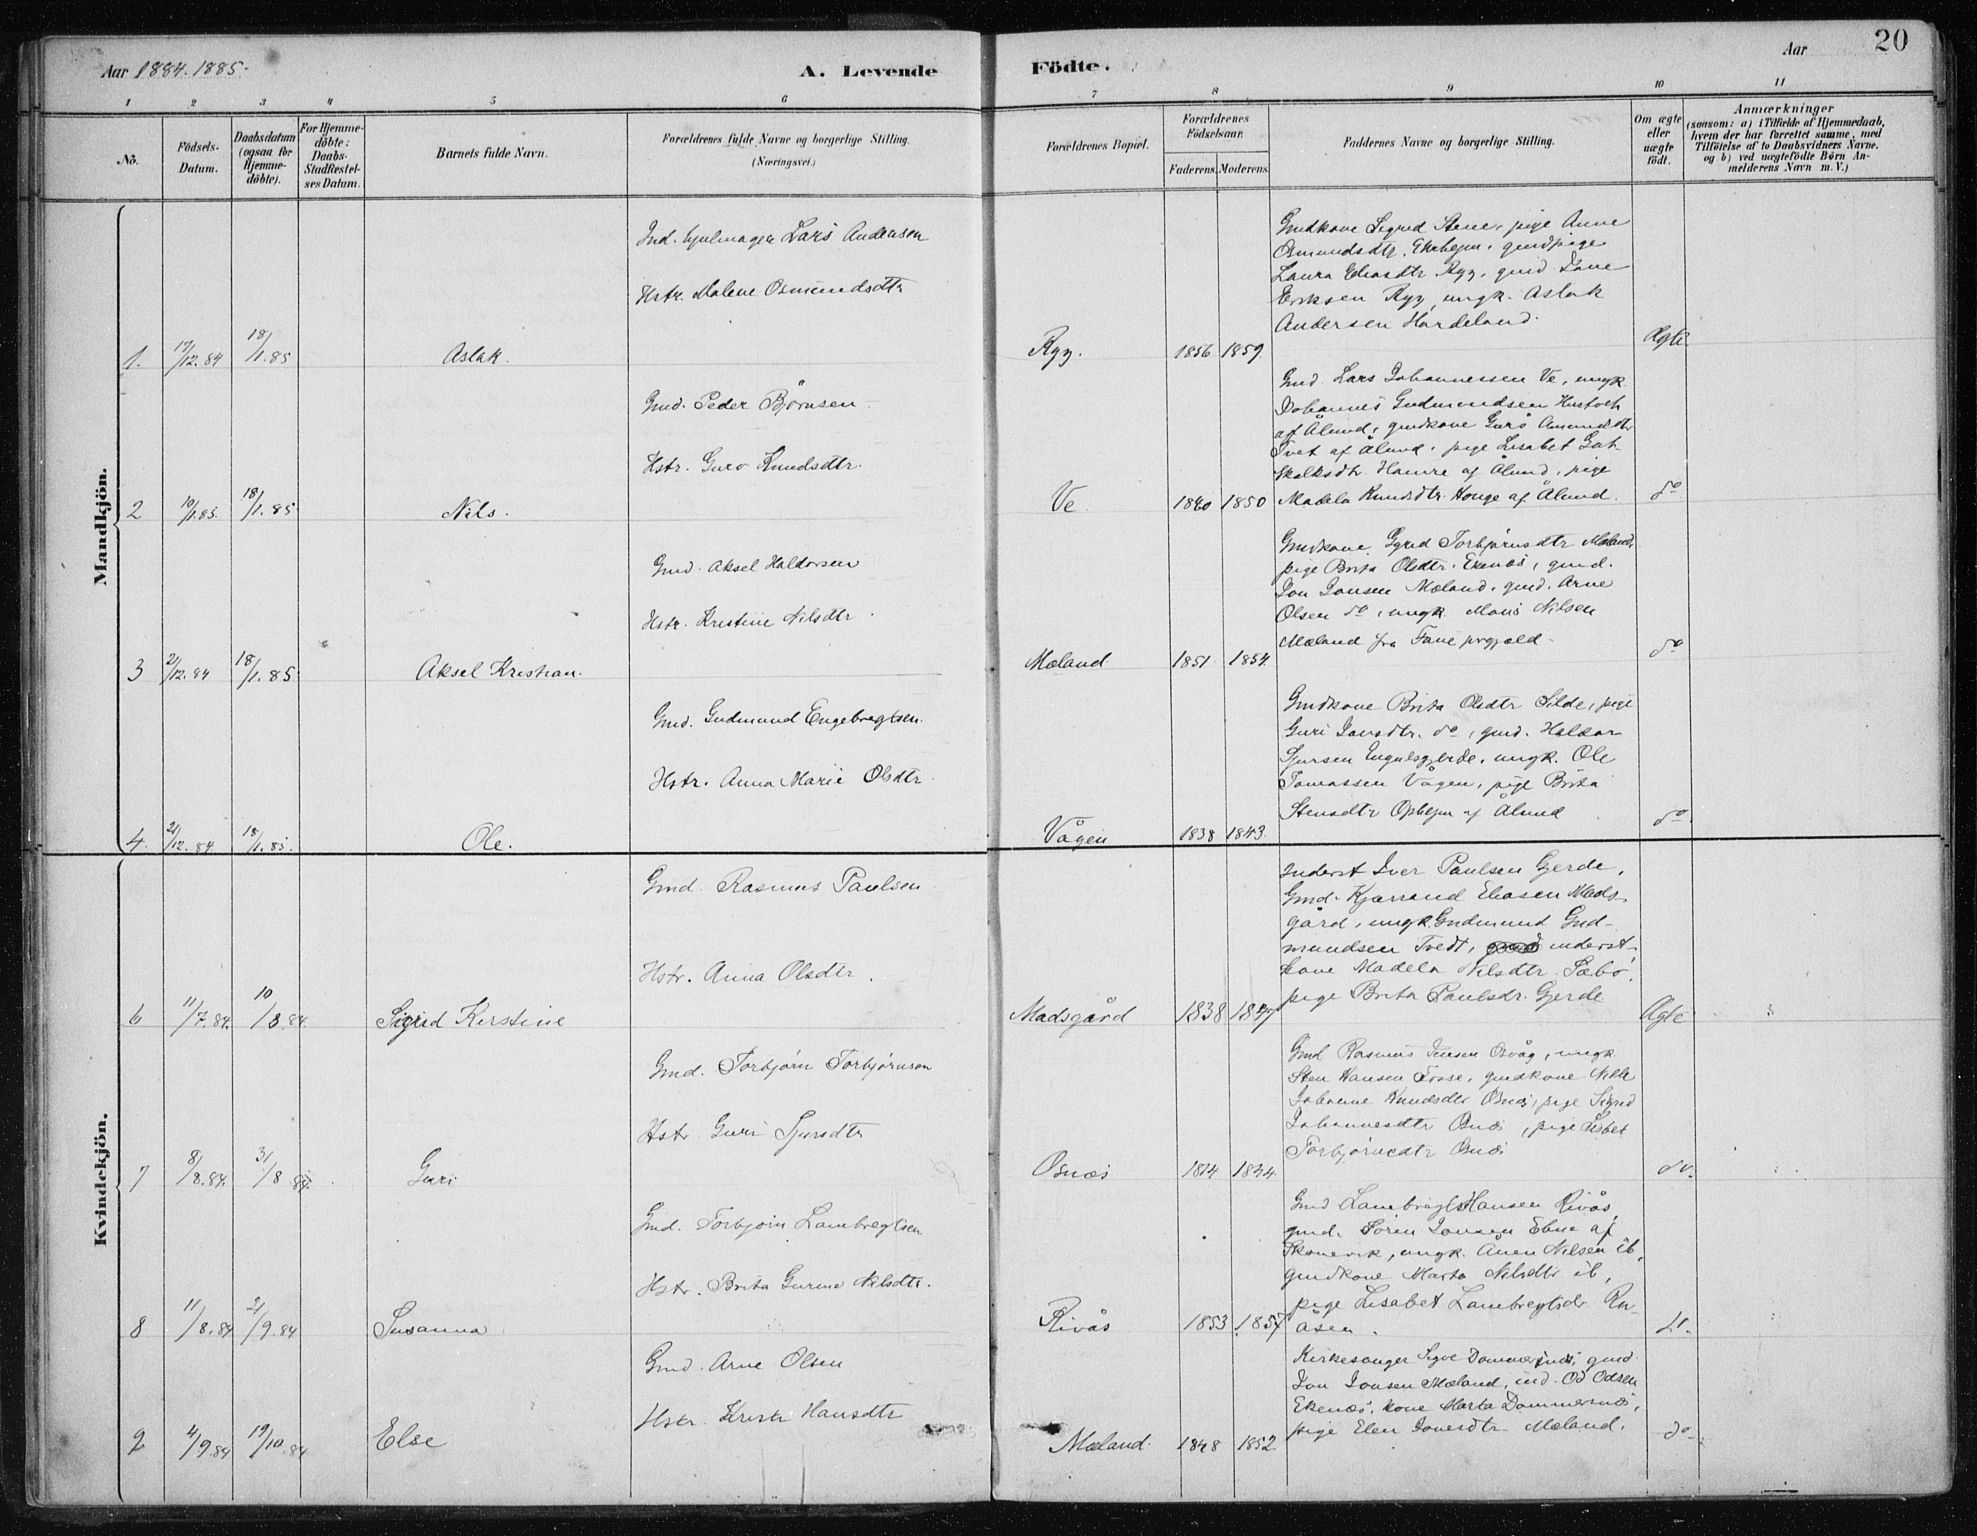 Aar 1884. 1885.
A. Levende
Födte.
Aar
20
1 2 3 4 5 6 7 8 9 10 11
No.
Födsels-
Datum.
Daabsdatum
(ogsaa for
Hjemme-
döbte).
For Hjemme-
döbte:
Daabs-
Stadfæstel-
ses Datum.
Barnets fulde Navn.
Forældrenes fulde Navne og borgerlige Stilling.
(Næringsvei.)
Forældrenes Bopæl.
Forældrenes
Födselsaar.
Faderens. Moderens.
Faddernes Navne og borgerlige Stilling.
Om ægte
eller
uægte
födt.
Anmærkninger
(saasom: a) i Tilfælde af Hjemmedaab,
hvem der har forrettet samme, med
Tilföielse af to Daabsvidners Navne,
og b) ved uægtefödte Börn An-
melderens Navn m. V.)
Mandkjön.
Ind. hjulmager Lars Andersen
Hstr. Malene Osmundsdtr
1. 17/12.84 18/1.85 Aslak.
Ryg. 1856 1859.
Gmdkone Sigrid Stene, pige Anne
Osmundsdtr. gmdpige
Laura Eliasdtr Ryg, gmd
Eriksen Ryg, ungk. Aslak
Andersen Hardeland.
Ægte
Gmd. Peder Björnsen
Hstr. Guro Knudsdtr.
2 10/1.85. 18/1.85 Nils.
Ve 1840 1850
Gmd. Lars Johannessen Ve, ungk
Johannes Gudmundsen
af Ålund, gmdkone Guro
Tvet af Ålund, pige Lisabet
Hamre af Ålund, pige
Madela Knudsdtr Houge af Ålund.
do
Gmd. Aksel Haldorsen
Hstr. Kristine Nilsdtr.
3 2/12.84 18/1.85 Aksel Kristian.
Mæland 1851 1854.
Gmdkone Sigrid Torbjørnsdtr Mæland,
pige Brita Olsdtr. Ekenæs, gmd.
Jon Jonsen Mæland, gmd. Arne
Olsen do, ungk. Mons Nilsen
Mæland fra Fane prgjæld.
do
Gmd. Gudmund Engebregtsen.
Hstr. Anna Marie Olsdtr.
4. 21/12.84 18/1.85. Ole.
Vågen 1838 1843.
Gmdkone Brita Olsdtr Silde, pige
Guri Jansdtr. do, gmd. Haldor
Sjursen Engelsgjerde, ungk. Ole
Tomassen Vågen, pige Brita
Stensdtr Ophejm af Ålund
do
Kvindekjön.
Gmd. Rasmus Paulsen
Hstr. Anna Olsdtr.
6 11/7.84. 10/8.84. Sigrid Kerstine
Madsgård 1838
Inderst Iver Paulsen Gjerde,
Gmd. Kjærrand Eliasen Mads-
gård, ungk. Gudmund Gud-
mundsen Tvedt, inderst-
kone Madela Nilsdtr. Sæbö.
pige Brita Paulsdr. Gjerde
Ægte
Gmd. Torbjörn Torbjörnsen
Hstr. Guri Sjursdtr
7 8/8.84. 31/8 84. Guri
Osnæs 1844.
Gmd Rasmus Jensen Osvåg, ungk.
Sten Hansen Fosse, gmdkone
Johanne Knudsdtr Osnæs, pige Sigrid
Johannesdtr Osnæs, pige Lisbet
Torbjörnsdtr Osnæs
do.
Gmd. Torbjörn Lambregtsen
Hstr. Brita Gurine Nilsdtr.
8 11/8.84 21/9.84 Susanna
Rivås 1853 1857
Gmd Lambregt Hansen Rivås,
gmd. Sören Jonsen Ebne af
Skonevik, ungk. Anen Nilsen ib,
gmdkone Marta Nilsdtr ib,
pige Lisabet Lambregtsdr
åsen.
Gmd. Arne Olsen
Hstr. Kristi Hansdtr
9 4/9.84 19/10.84 Else
Mæland. 1848 1852
Kirkesanger Sigve Dommersnæs, gmd.
Jon Jonsen Mæland, ind. Od Odsen
Ekenæs, kone Marta Dommersnæs,
pige Elen Jonesdtr. Mæland.
do